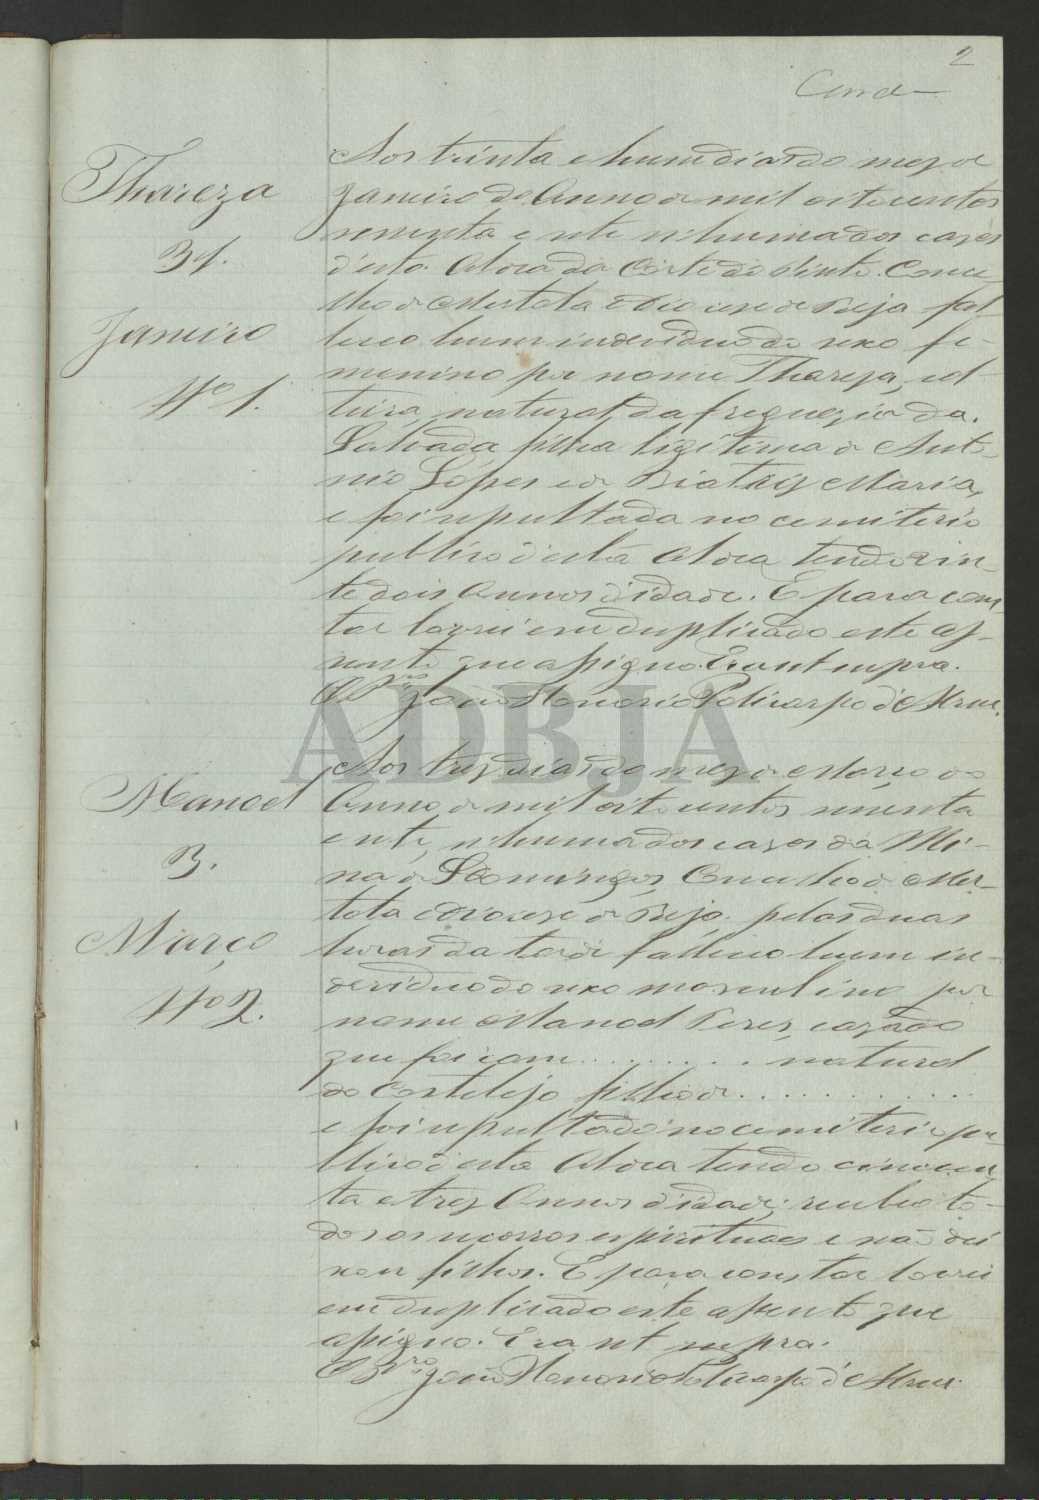 2
Cond
Thareza
31.
Janeiro
Nº 1.
Aos trinta e hum dias do mez de
Janeiro do Anno de mil oitocentos
sesenta e sete n'huma das cazas
d'esta Aldea da Corte do Pinto. Conce-
lho de Mertola e Diocese de Beja fal-
leceo hum individuo do sexo fe-
menino por nome Thareza, sol-
teira, natural da freguezia da
Salvada filha ligitima de Anto-
nio Lopes e de Biatriz Maria,
e foi sepultada no cemiterio
publico d'esta Aldea tendo vin-
te dois Annos d'idade. E para cons-
tar lavrei em duplicado este as-
sento que assigno. Era ut supra.
O Prº João Honorio Policarpo d'
Manoel
3.
Março
Nº 2.
Aos tres dias do mez de Março do
Anno de mil oitocentos sesenta
e sete, n'huma das cazas da Mi-
na de S. Domingos Concelho de Mer-
tola e Diocese de Beja pelas duas
horas da tarde falleceo hum in-
deviduo do sexo masculino por
nome Manoel Peres, cazado
que foi com . . . . . . . . natural
do Castelejo filho de . . . . . . . . . . . .
e foi sepultado no cemiterio pu-
blico d'esta Aldea tendo cincoen-
ta e tres Annos d'idade; recebeo to-
dos os socorros espirituaes e não dei
xou filhos. E para constar lavrei
em duplicado este assento que
assigno. Era ut supra.
O Prº João Honorio Policarpo d'
ADBJA